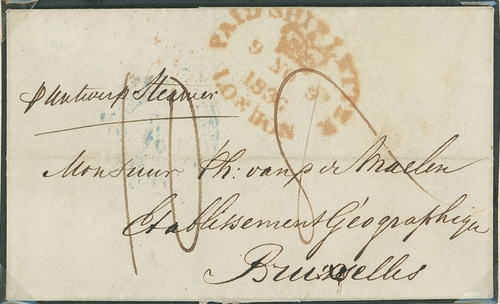 PAID SHIP LETTER
9
1836
LONDON
p Antwerp Steamer
10
8
Monsieur Ph: vander Maelen
Etablissement Géographique
Bruxelles